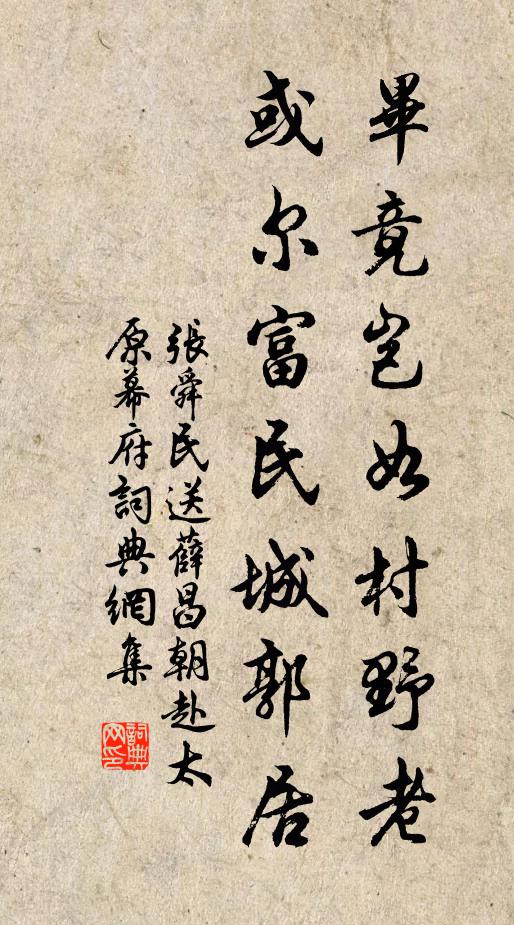 畢竟豈如村野老
或尔富民城郭居
張舜民送薛昌朝赴太
原幕府詞典網集
詞典
网印